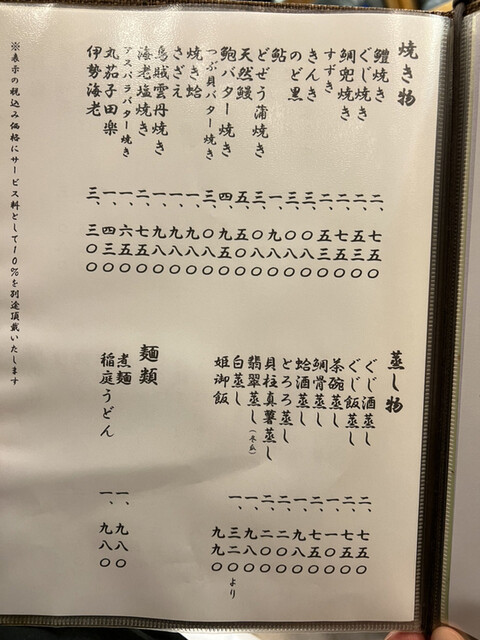 焼き物
鱧焼き 二、七五〇
ぐじ焼き 二、五三〇
鯛兜焼き 二、七五〇
すずき 二、五三〇
きんき 三、〇八〇
のど黒 三、〇八〇
鮎 一、九八〇
どぜう蒲焼き 三、〇八〇
天然鰻 五、五〇〇
鮑バター焼き 四、九五〇
つぶ貝バター焼き 三、〇八〇
焼き蛤 一、九八〇
さざえ 一、九八〇
烏賊雲丹焼き 一、九八〇
海老塩焼き 二、七五〇
アスパラバター焼き 一、六五〇
丸茄子田楽 一、四三〇
伊勢海老 三、三〇〇
蒸し物
ぐじ酒蒸し 二、七五〇
ぐじ飯蒸し 二、七五〇
茶碗蒸し 一、一〇〇
鯛骨蒸し 二、七五〇
蛤酒蒸し 一、九八〇
とろろ蒸し 二、二〇〇
貝柱真薯蒸し 二、二〇〇
翡翠蒸し(冬瓜) 一、九八〇
白蒸し 一、三二〇より
姫御飯 九九〇
麺類
煮麺 一、九八〇
稲庭うどん 一、九八〇
※表示の税込み価格にサービス料として10%を別途頂戴いたします